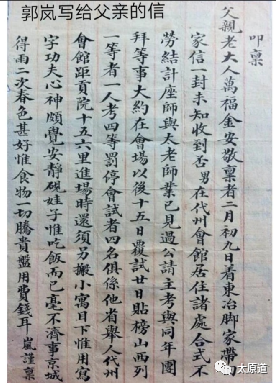 郭岚写给父亲的信
叩稟
父親老大人萬福金安敬稟者二月初九日着東治脚家帶
家信一封未知收到否男在代州會館居住諸處合式不
勞結計座師與太老師業已見過公請主考與同年團
拜等事大約在會場以後十五日覆試廿日貼榜山西列
一等者一人考四等罰停會試者四名俱係他省舉人代州
會館距貢院十五六里進場時還須另搬小寓目下惟用寫
字功夫心神頗覺安靜硯娃子惟吃飯而已毫不濟事京城
得雨二次春色甚好惟食物一切騰貴盤用費錢耳 嵐謹稟
太原道